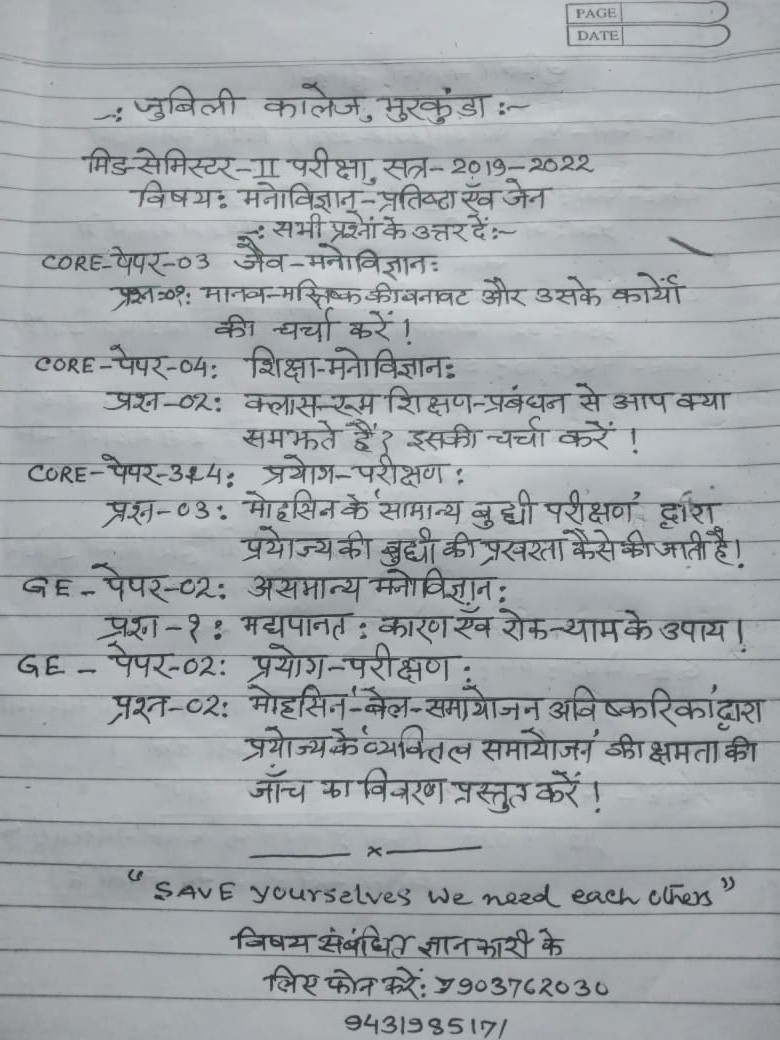 PAGE
DATE
-: जुबिली कालेज, भुरकुंडा :-
मिड-सेमिस्टर-II परीक्षा, सत्र-2019-2022
विषय: मनोविज्ञान-प्रतिष्ठा एँव जेन
-: सभी प्रश्नों के उत्तर दें:-
CORE-पेपर-03 जैव-मनोविज्ञान:
प्रश्न-०१: मानव-मस्तिष्क की बनावट और उसके कार्यों
की चर्चा करें !
CORE-पेपर-04: शिक्षा-मनोविज्ञान:
प्रश्न-02: क्लास-रूम शिक्षण-प्रबंधन से आप क्या
समझते हैं? इसकी चर्चा करें !
CORE-पेपर-3&4: प्रयोग-परीक्षण :
प्रश्न-03: मोहसिन के 'सामान्य बुद्धी परीक्षण' द्वारा
प्रयोज्य की बुद्धी की प्रखरता कैसे की जाती है!
GE-पेपर-02: असमान्य मनोविज्ञान:
प्रश्न-१: मद्यपानत: कारण एँव रोक-थाम के उपाय !
GE-पेपर-02: प्रयोग-परीक्षण :
प्रश्न-02: मोहसिन-बेल-समायोजन अविष्कारिका' द्वारा
प्रयोज्य के 'व्यक्तित्व समायोजन' की क्षमता की
जाँच का विवरण प्रस्तुत करें !
x
"SAVE yourselves we need each others"
विषय संबंधित ज्ञानकारी के
लिए फोन करें: 7903762030
9431985171